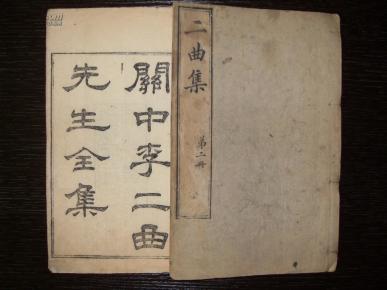 二曲集
第二冊
關中李二曲
先生全集